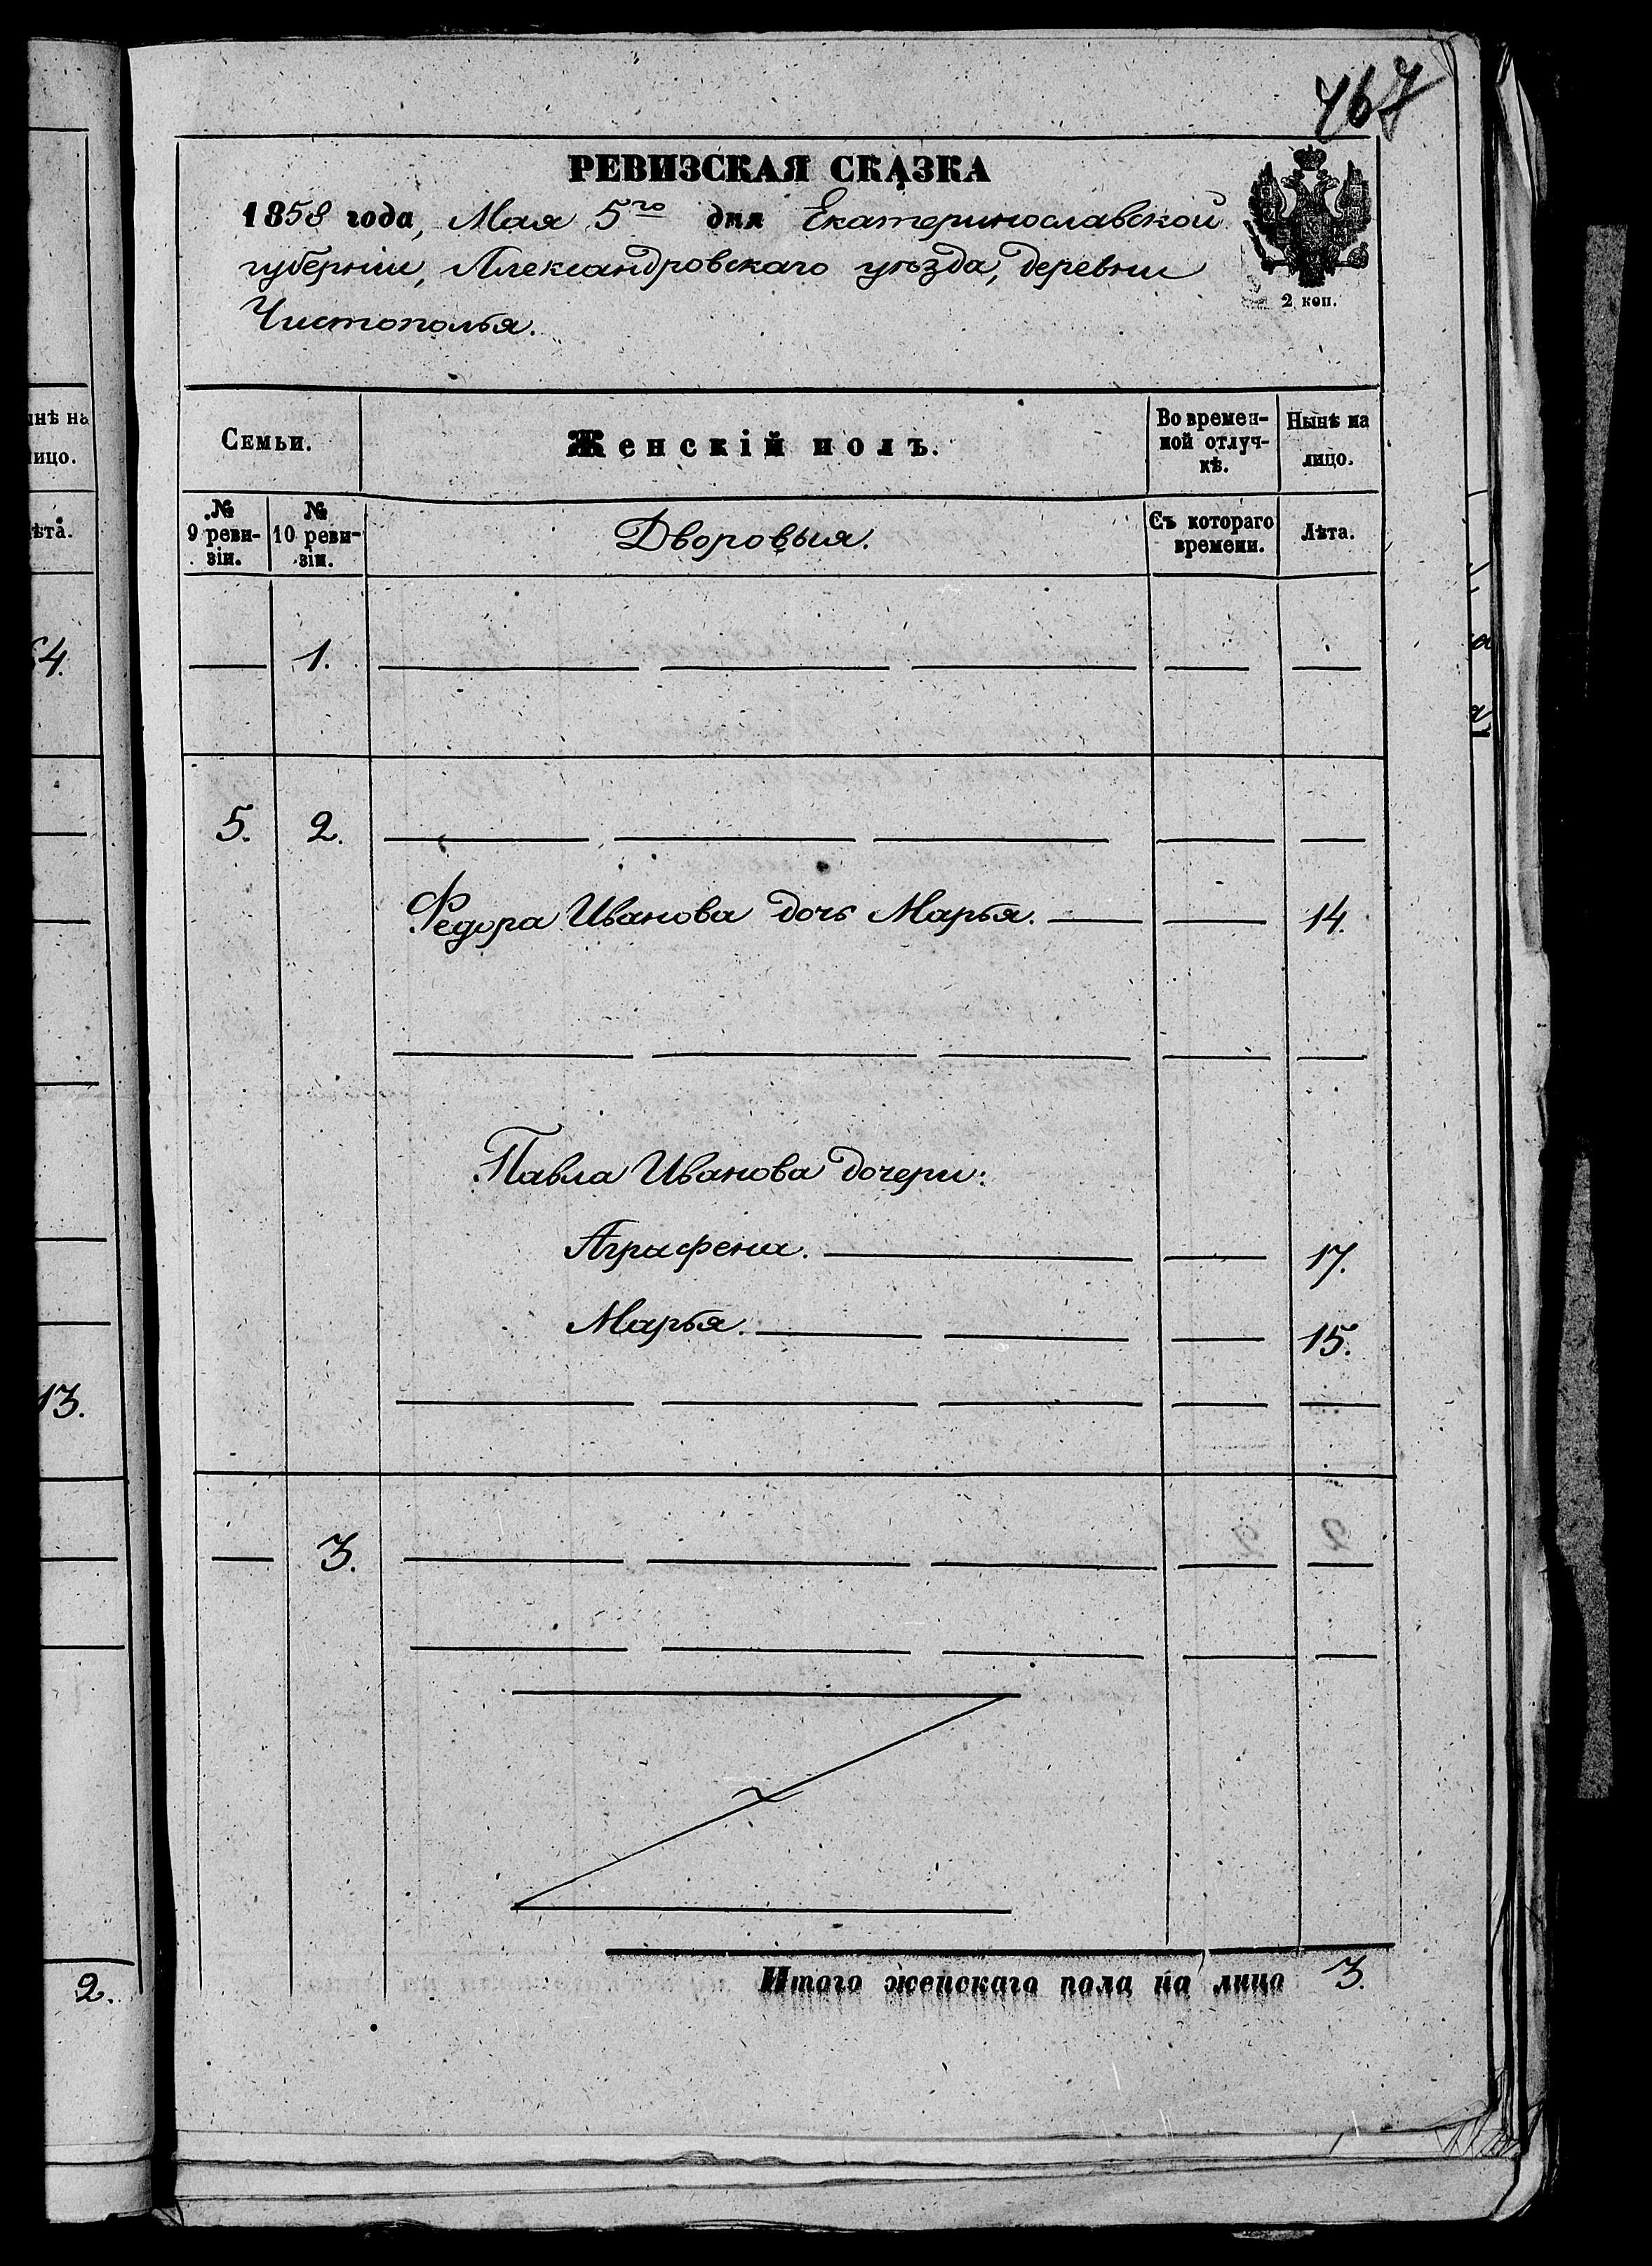 467
РЕВИЗСКАЯ СКАЗКА
1858 года, Мая 5го дня Екатеринославской
губерніи, Александровскаго уѣзда, деревни
Чистополья.
2 коп.
Семьи.
Женскій полъ.
Во времен-
ной отлуч-
кѣ.
Нынѣ на
лицо.
№
9 реви-
зіи.
№
10 реви-
зіи.
Дворовыя.
Съ котораго
времени.
Лѣта.
1.
5. 2.
Федора Иванова дочь Марья. 14.
Павла Иванова дочери:
Аграфена. 17.
Марья. 15.
3.
Итого женскаго пола на лицо 3.
нѣ на
ицо.
ѣта.
4.
13.
2.